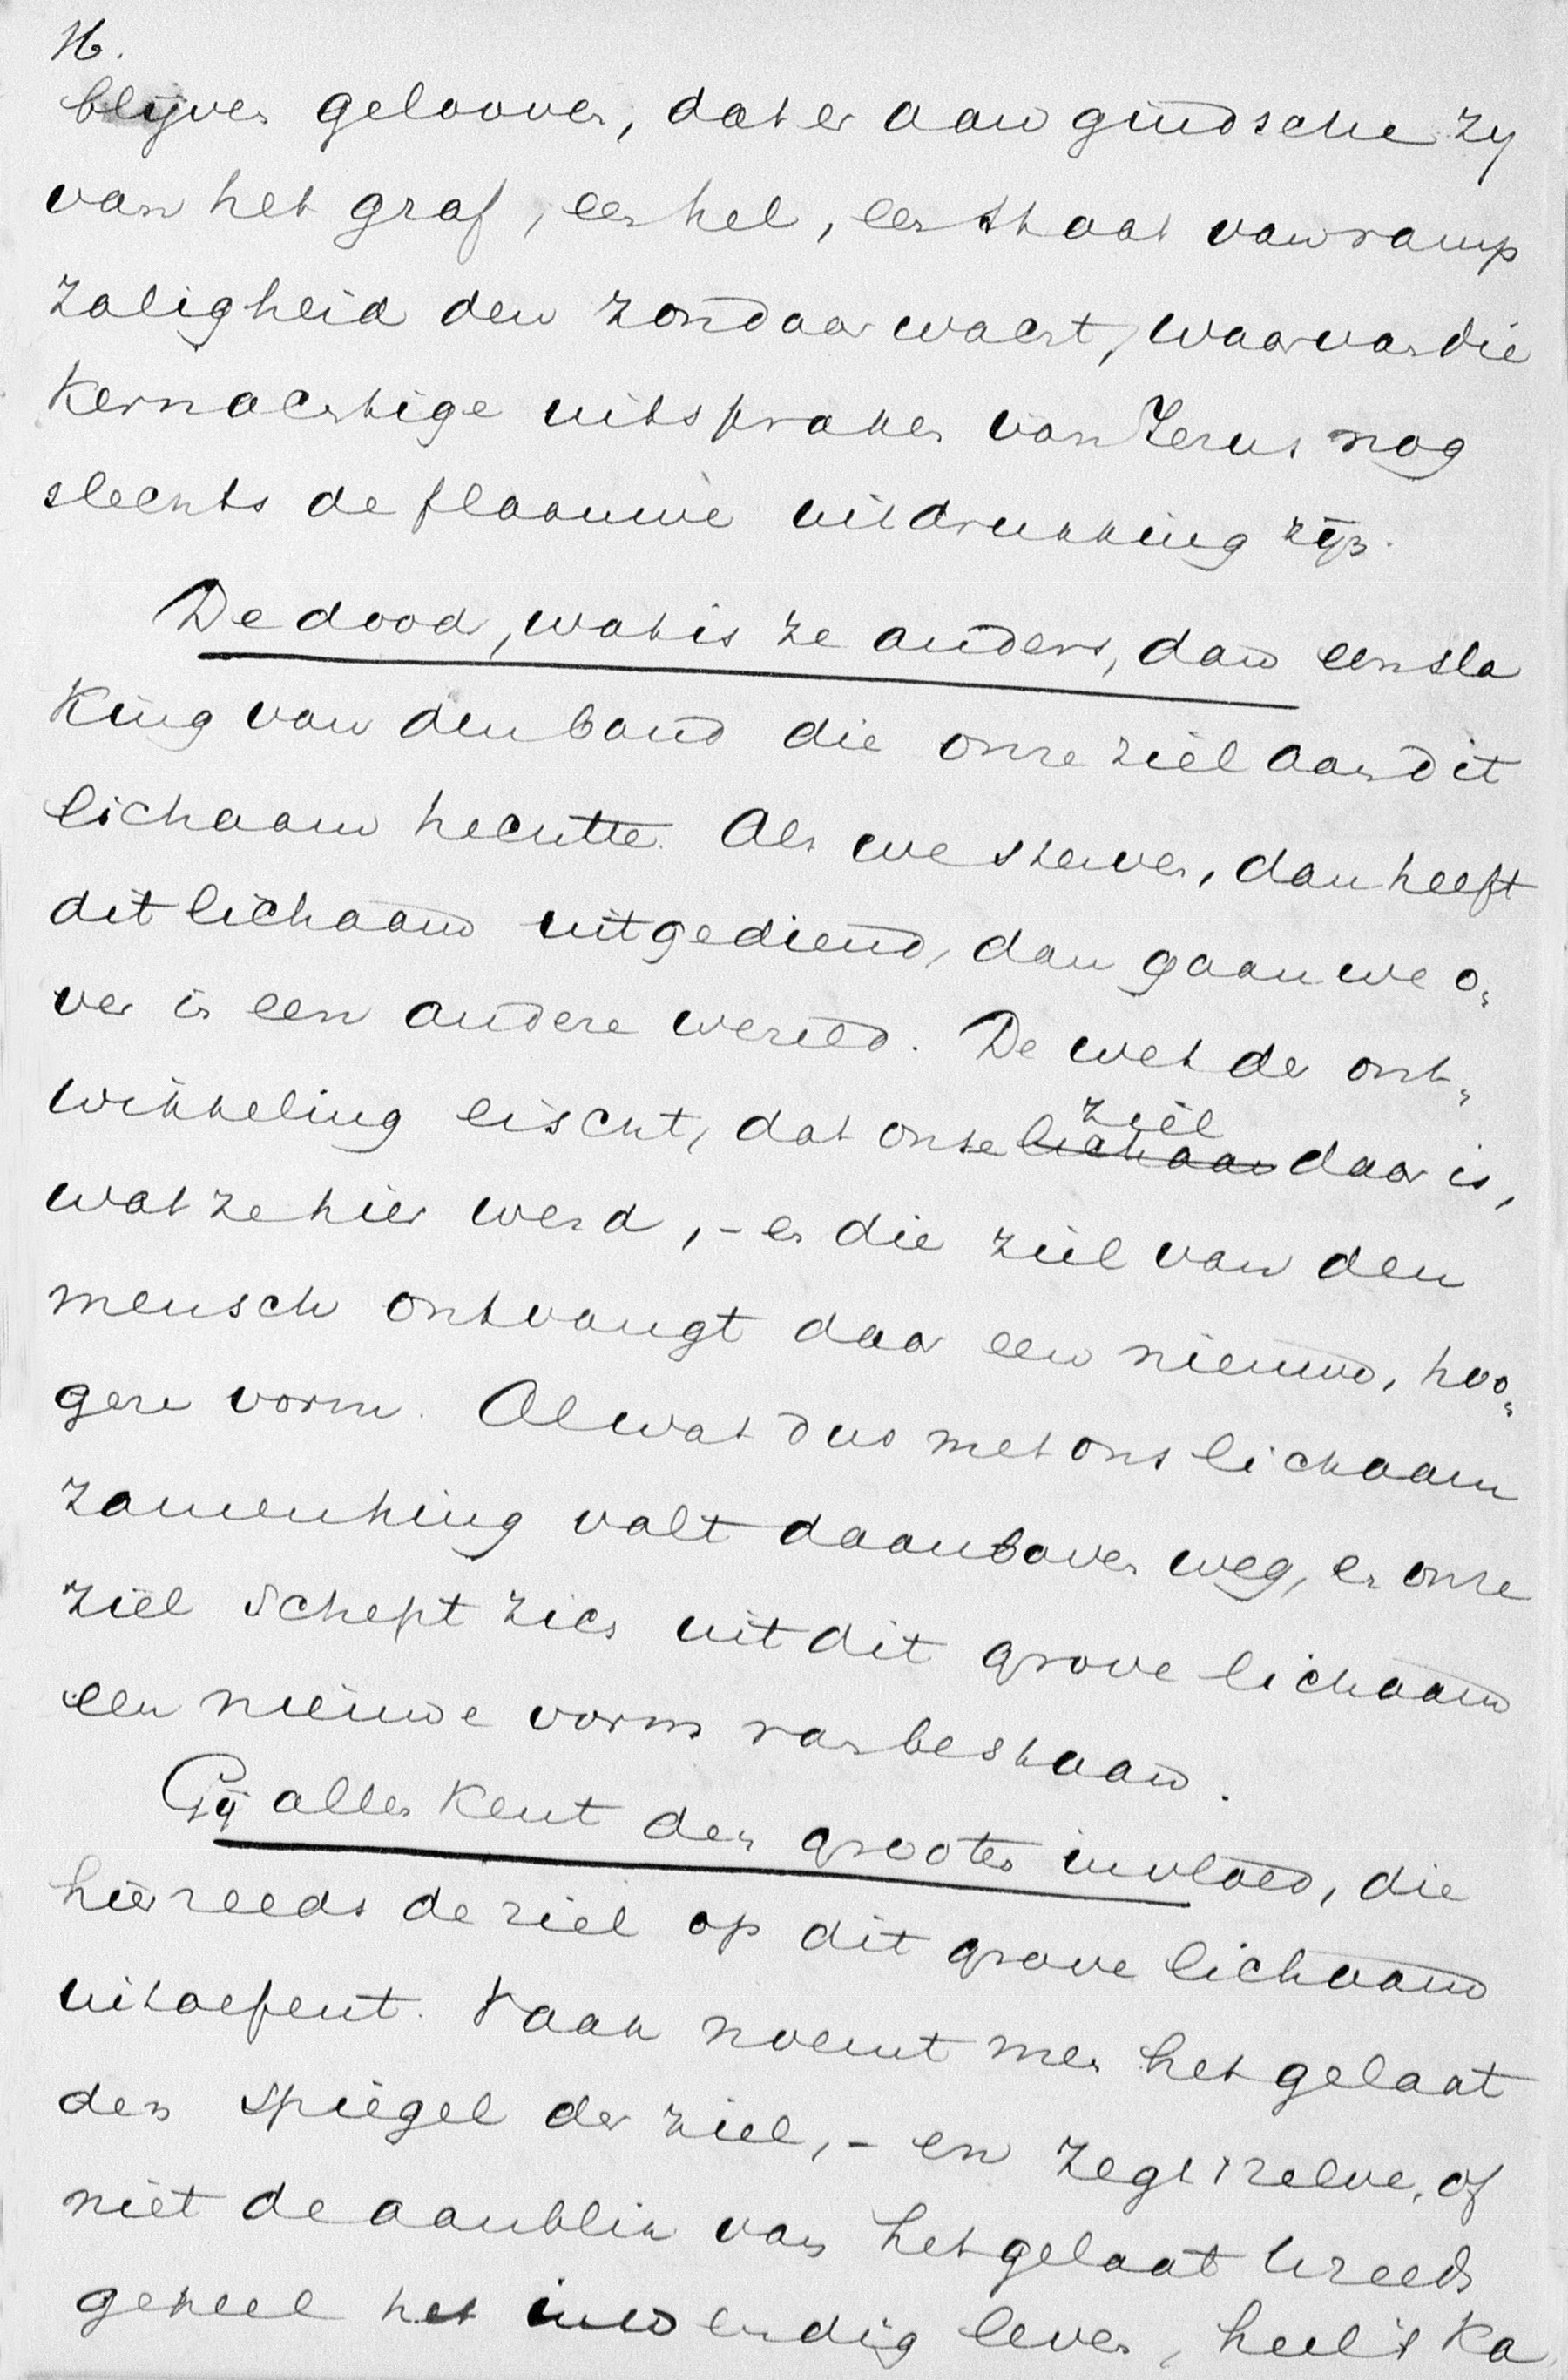 16.
blijven gelooven, dat er aan gindsche zy
van het graf, een hel, een staat van ramp
zaligheid den zondaar wacht, waarvan die
kernachtige uitspraken van Jezus nog
slechts de flaauwe uitdrukking zijn.
De dood, wat is ze anders, dan een sla
king van den band die onze ziel aan dit
lichaam hechtte. Als we sterven, dan heeft
dit lichaam uitgediend, dan gaan we o„
ver in een andere wereld. De wet der ont„
wikkeling eischt, dat onze ~~lichaam~~ ziel daar is,
wat ze hier werd, – en die ziel van den
mensch ontvangt daar een nieuwe, hoo„
gere vorm. Al wat dus met ons lichaam
zamenhing valt daarboven weg, en onze
ziel schept zich uit dit grove lichaam
een nieuwe vorm van bestaan.
Gij allen kent den grooten invloed, die
hier reeds de ziel op dit grove lichaam
uitoefent. Vaak noemt men het gelaat
den spiegel der ziel, – en zegt zelve, of
niet de aanblik van het gelaat U reeds
geheel het inwendig leven, heel 't ka